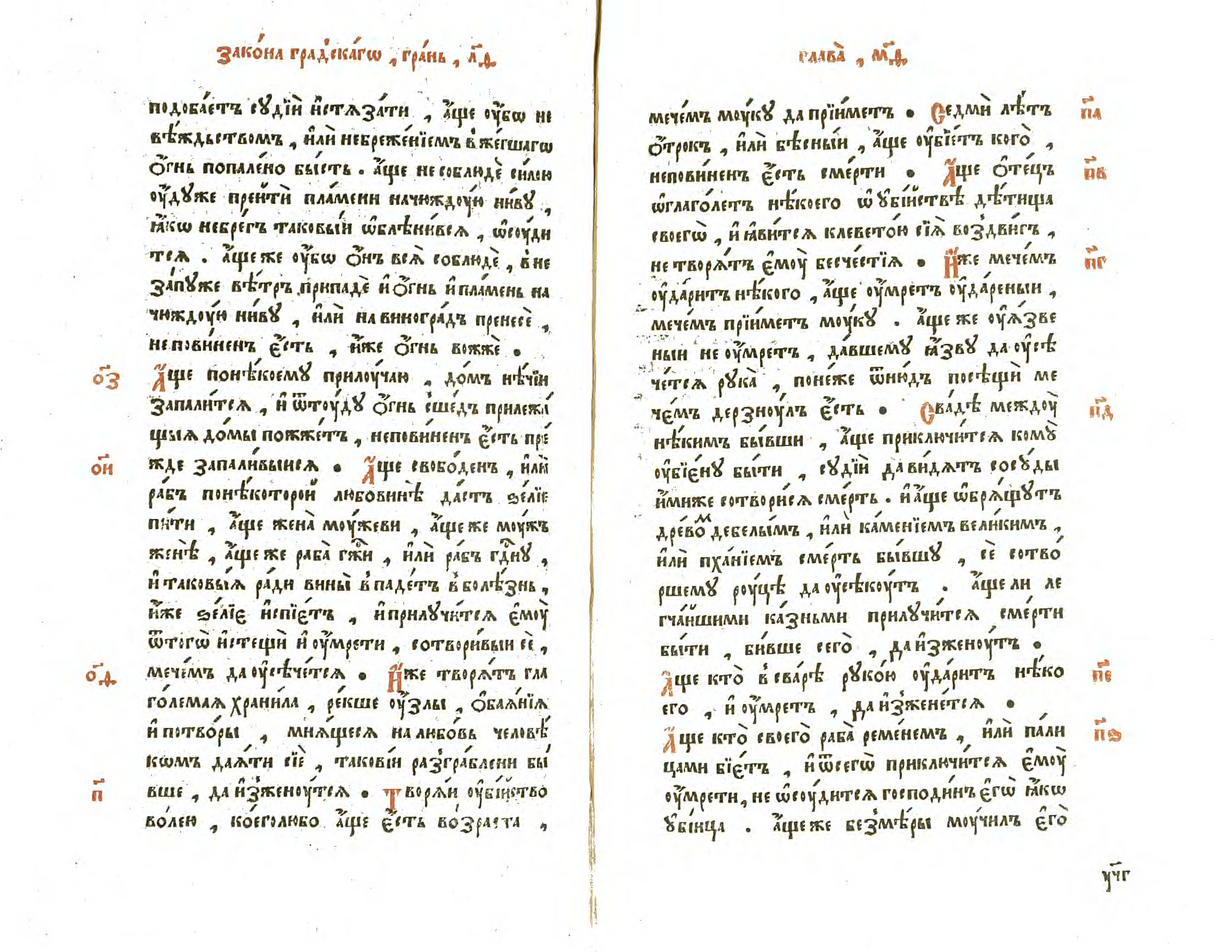 Зако́на градскáгѡ , грáнь , л҃ѳ
подобáетъ сꙋдїѝ и҆стѧзáти , а҆́ще ᲂу҆́бѡ не
вѣ́ждьствомъ , и҆лѝ небреже́нїемъ вже́гшагѡ
ѻ҆́гнь попалено̀ бы́сть . а҆́ще не соблюдѐ си́лою
ᲂу҆́дꙋже прейтѝ пла́мени начюждꙋ́ю ни́вꙋ ,
ꙗ҆́кѡ небре́гъ таковы́й ѡ҆блѣни́всѧ , ѡ҆сꙋ́ди
тсѧ . а҆́щеже ᲂу҆́бѡ ѻ҆́нъ всѧ̀ соблюдѐ , вне
запꙋ́же вѣ́тръ припадѐ и҆ ѻ҆́гнь и҆ пла́мень на
чюждꙋ́ю ни́вꙋ , и҆лѝ на виногра́дъ пренесѐ ,
непови́ненъ є҆́сть , и҆́же ѻ҆́гнь вожжѐ .
о҃з
А҆́ще понѣ́коемꙋ прилꙋ́чаю , до́мъ нѣ́чїи
запали́тсѧ , и҆ ѿтꙋ́дꙋ ѻ҆́гнь сше́дъ прилежа́
щыѧ до́мы пожже́тъ , непови́ненъ є҆́сть пре́
жде запали́выисѧ .
о҃и
А҆́ще свобо́денъ , и҆лѝ
ра́бъ понѣ́которой любови́нѣ да́стъ ѕе́лїе
пи́ти , а҆́ще жена̀ мꙋ́жеви , а҆́ще же мꙋ́жъ
женѣ̀ , а҆́ще же раба̀ гж҃и , и҆лѝ ра́бъ гд҃нꙋ ,
и҆ таковы́ѧ ради вины̀ впаде́тъ вболѣ́знь ,
и҆́же ѕе́лїе и҆спїе́тъ , и҆ прилꙋчи́тсѧ є҆мꙋ̀
ѿтогѡ̀ и҆стещѝ и҆ ᲂу҆мре́ти , сотвори́выи сѐ ,
мече́мъ да ᲂу҆сѣче́тсѧ .
о҃ѳ
И҆́же творѧ́тъ гла
го́лемаѧ храни́ла , ре́кше ᲂу҆́злы , ѻ҆баѧ́нїѧ
и҆ потво́ры , мнѧ́щесѧ на любо́вь человѣ́
комъ даѧ́ти сїѐ , такові́и разгра́блени бы́
вше , да и҆зженꙋ́тсѧ .
п҃
Творѧ́и ᲂу҆бі́йство
во́лею , коеголюбо а҆́ще є҆́сть во́зраста ,
глава̀ , м҃ѳ
мече́мъ мꙋ́кꙋ да прїи́метъ .
п҃а
Седмѝ лѣ́тъ
ѻ҆́трокъ , и҆лѝ бѣ́сныи , а҆́ще ᲂу҆бїе́тъ кого̀ ,
непови́ненъ є҆́сть сме́рти .
п҃в
А҆́ще ѻ҆те́цъ
ѡ҆глаго́летъ нѣ́коего ѡ҆ ᲂу҆бі́йствѣ дѣ́тища
своегѡ̀ , и҆ ꙗ҆ви́тсѧ клевето́ю сїѧ̀ воздви́гъ ,
не творѧ́тъ є҆мꙋ̀ бесче́стїѧ .
п҃г
И҆́же мече́мъ
ᲂу҆да́ритъ нѣ́кого , а҆́ще ᲂу҆́мретъ ᲂу҆да́реныи ,
мече́мъ прїи́метъ мꙋ́кꙋ . а҆́ще же ᲂу҆ѧ́зве
ныи не ᲂу҆́мретъ , да́вшемꙋ ꙗ҆́звꙋ да ᲂу҆сѣ
че́тсѧ рꙋка̀ , поне́же ѿню́дъ посѣщѝ ме
че́мъ дерзнꙋ́лъ є҆́сть .
п҃д
Сва́дѣ междꙋ̀
нѣ́кимъ бы́вши , а҆́ще приключи́тсѧ комꙋ̀
ᲂу҆бїе́нꙋ бы́ти , сꙋдїѝ да ви́дѧтъ сосꙋ́ды
и҆́миже сотвори́сѧ сме́рть . и҆ а҆́ще ѡ҆брѧ́щꙋтъ
дре́вомъ дебе́лымъ , и҆лѝ ка́менїемъ вели́кимъ ,
и҆лѝ пха́нїемъ сме́рть бы́вшꙋ , сѐ сотво́
ршемꙋ рꙋ́цѣ да ᲂу҆сѣкꙋ́тъ . а҆́ще ли ле
гча́йшими ка́зньми прилꙋчи́тсѧ сме́рти
бы́ти , би́вше сего̀ , да и҆зженꙋ́тъ .
п҃е
А҆́ще кто̀ всва́рѣ рꙋко́ю ᲂу҆да́ритъ нѣ́ко
его , и҆ ᲂу҆́мретъ , да и҆зжене́тсѧ .
п҃ѕ
А҆́ще кто̀ своего̀ раба̀ реме́немъ , и҆лѝ па́ли
цами бїе́тъ , и҆ ѿсегѡ̀ приключи́тсѧ є҆мꙋ̀
ᲂу҆мре́ти , не ѡ҆сꙋ́дитсѧ господи́нъ є҆гѡ̀ ꙗ҆́кѡ
ᲂу҆бі́ица . а҆́ще же безмѣ́ры мꙋ́чилъ є҆го̀
ѵ҃чг